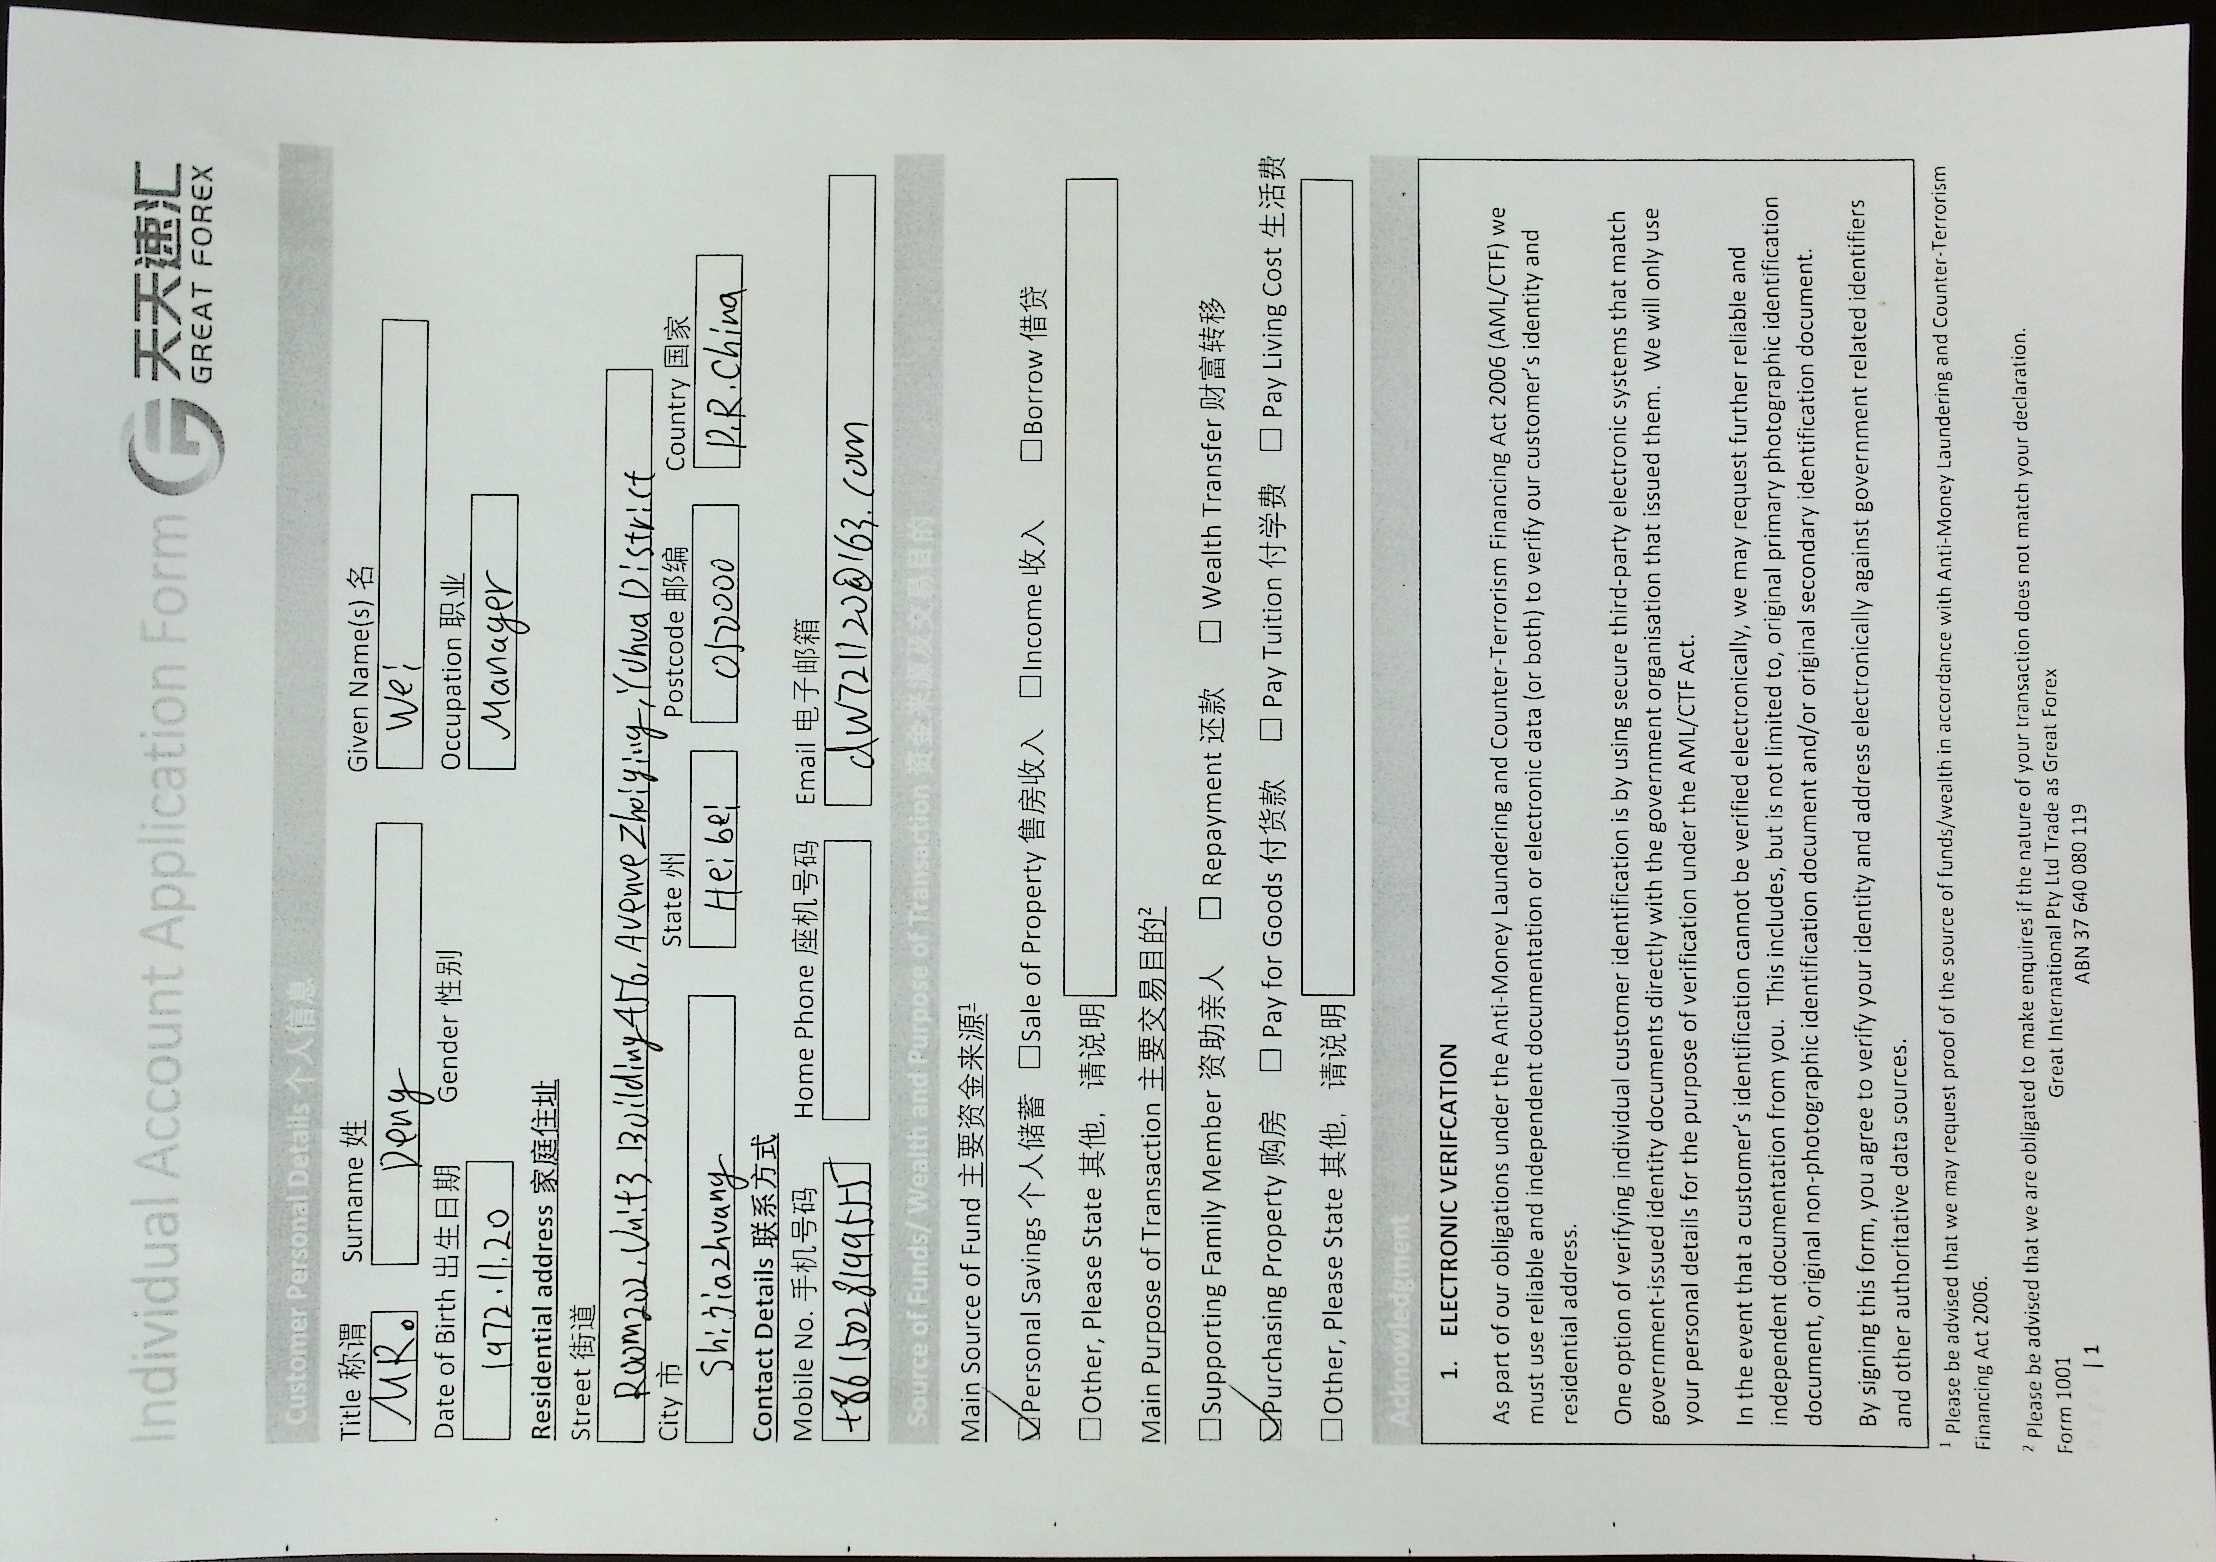 Individual Account Application Form 天天速汇
GREAT FOREX
Customer Personal Details 个人信息
Title 称谓 Surname 姓 Given Name(s) 名
MR. Deng Wei
Date of Birth 出生日期 Gender 性别 Occupation 职业
1972.11.20 Manager
Residential address 家庭住址
Street 街道
Room202.Unit3.Building456.Avenue Zhaiying,Yuhua District
City 市 State 州 Postcode 邮编 Country 国家
Shijiazhuang Heibei 050000 P.R.China
Contact Details 联系方式
Mobile No. 手机号码 Home Phone 座机号码 Email 电子邮箱
+8615028199555 dw721120@163.com
Source of Funds/ Wealth and Purpose of Transaction 资金来源及交易目的
Main Source of Fund 主要资金来源1
☑Personal Savings 个人储蓄 ☐Sale of Property 售房收入 ☐Income 收入 ☐Borrow 借贷
☐Other, Please State 其他, 请说明
Main Purpose of Transaction 主要交易目的2
☐Supporting Family Member 资助亲人 ☐ Repayment 还款 ☐ Wealth Transfer 财富转移
☑Purchasing Property 购房 ☐ Pay for Goods 付货款 ☐ Pay Tuition 付学费 ☐ Pay Living Cost 生活费
☐Other, Please State 其他, 请说明
Acknowledgment
1. ELECTRONIC VERIFCATION
As part of our obligations under the Anti-Money Laundering and Counter-Terrorism Financing Act 2006 (AML/CTF) we
must use reliable and independent documentation or electronic data (or both) to verify our customer's identity and
residential address.
One option of verifying individual customer identification is by using secure third-party electronic systems that match
government-issued identity documents directly with the government organisation that issued them. We will only use
your personal details for the purpose of verification under the AML/CTF Act.
In the event that a customer's identification cannot be verified electronically, we may request further reliable and
independent documentation from you. This includes, but is not limited to, original primary photographic identification
document, original non-photographic identification document and/or original secondary identification document.
By signing this form, you agree to verify your identity and address electronically against government related identifiers
and other authoritative data sources.
1 Please be advised that we may request proof of the source of funds/wealth in accordance with Anti-Money Laundering and Counter-Terrorism
Financing Act 2006.
2 Please be advised that we are obligated to make enquires if the nature of your transaction does not match your declaration.
Form 1001 Great International Pty Ltd Trade as Great Forex
| 1 ABN 37 640 080 119